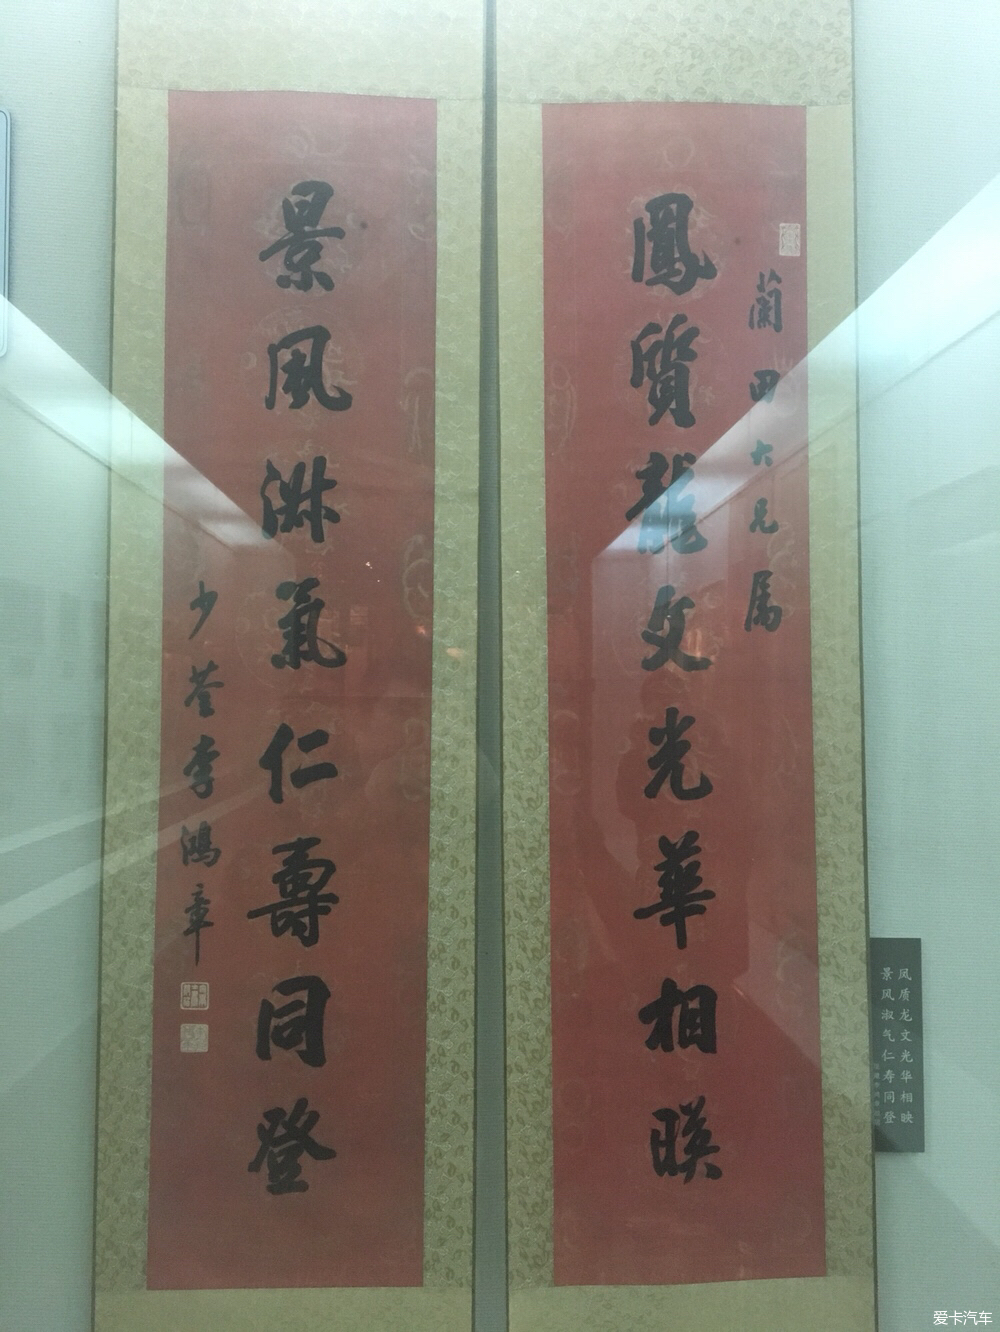 蘭田大兄属
鳳質龍文光華相暎
景風淑氣仁壽同登
少荃李鴻章
凤质龙文光华相映
景风淑气仁寿同登
爱卡汽车